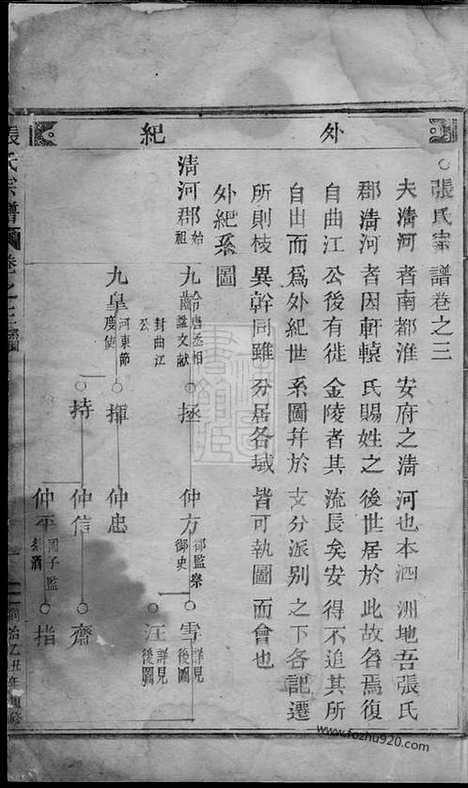 外紀
○張氏宗譜卷之三
夫清河者南都淮安府之清河也本泗洲地吾張氏
郡清河者因軒轅氏賜姓之後世居於此故名焉復
自曲江公後有徙金陵者其流長矣安得不追其所
自由而為外紀世系圖幷於支分派別之下各記遷
所則枝異幹同雖分居各域皆可執圖而會也
外紀系圖
清河郡始祖
九齡唐丞相諡文獻封曲江公
拯
仲方御史
雪詳見後圖
汪詳見後圖
九皐河東節度使
揮
仲忠
持
仲信
齋
仲平國子監祭酒
指
張氏宗譜
卷之三
同治乙丑年
www.fozhu920.com